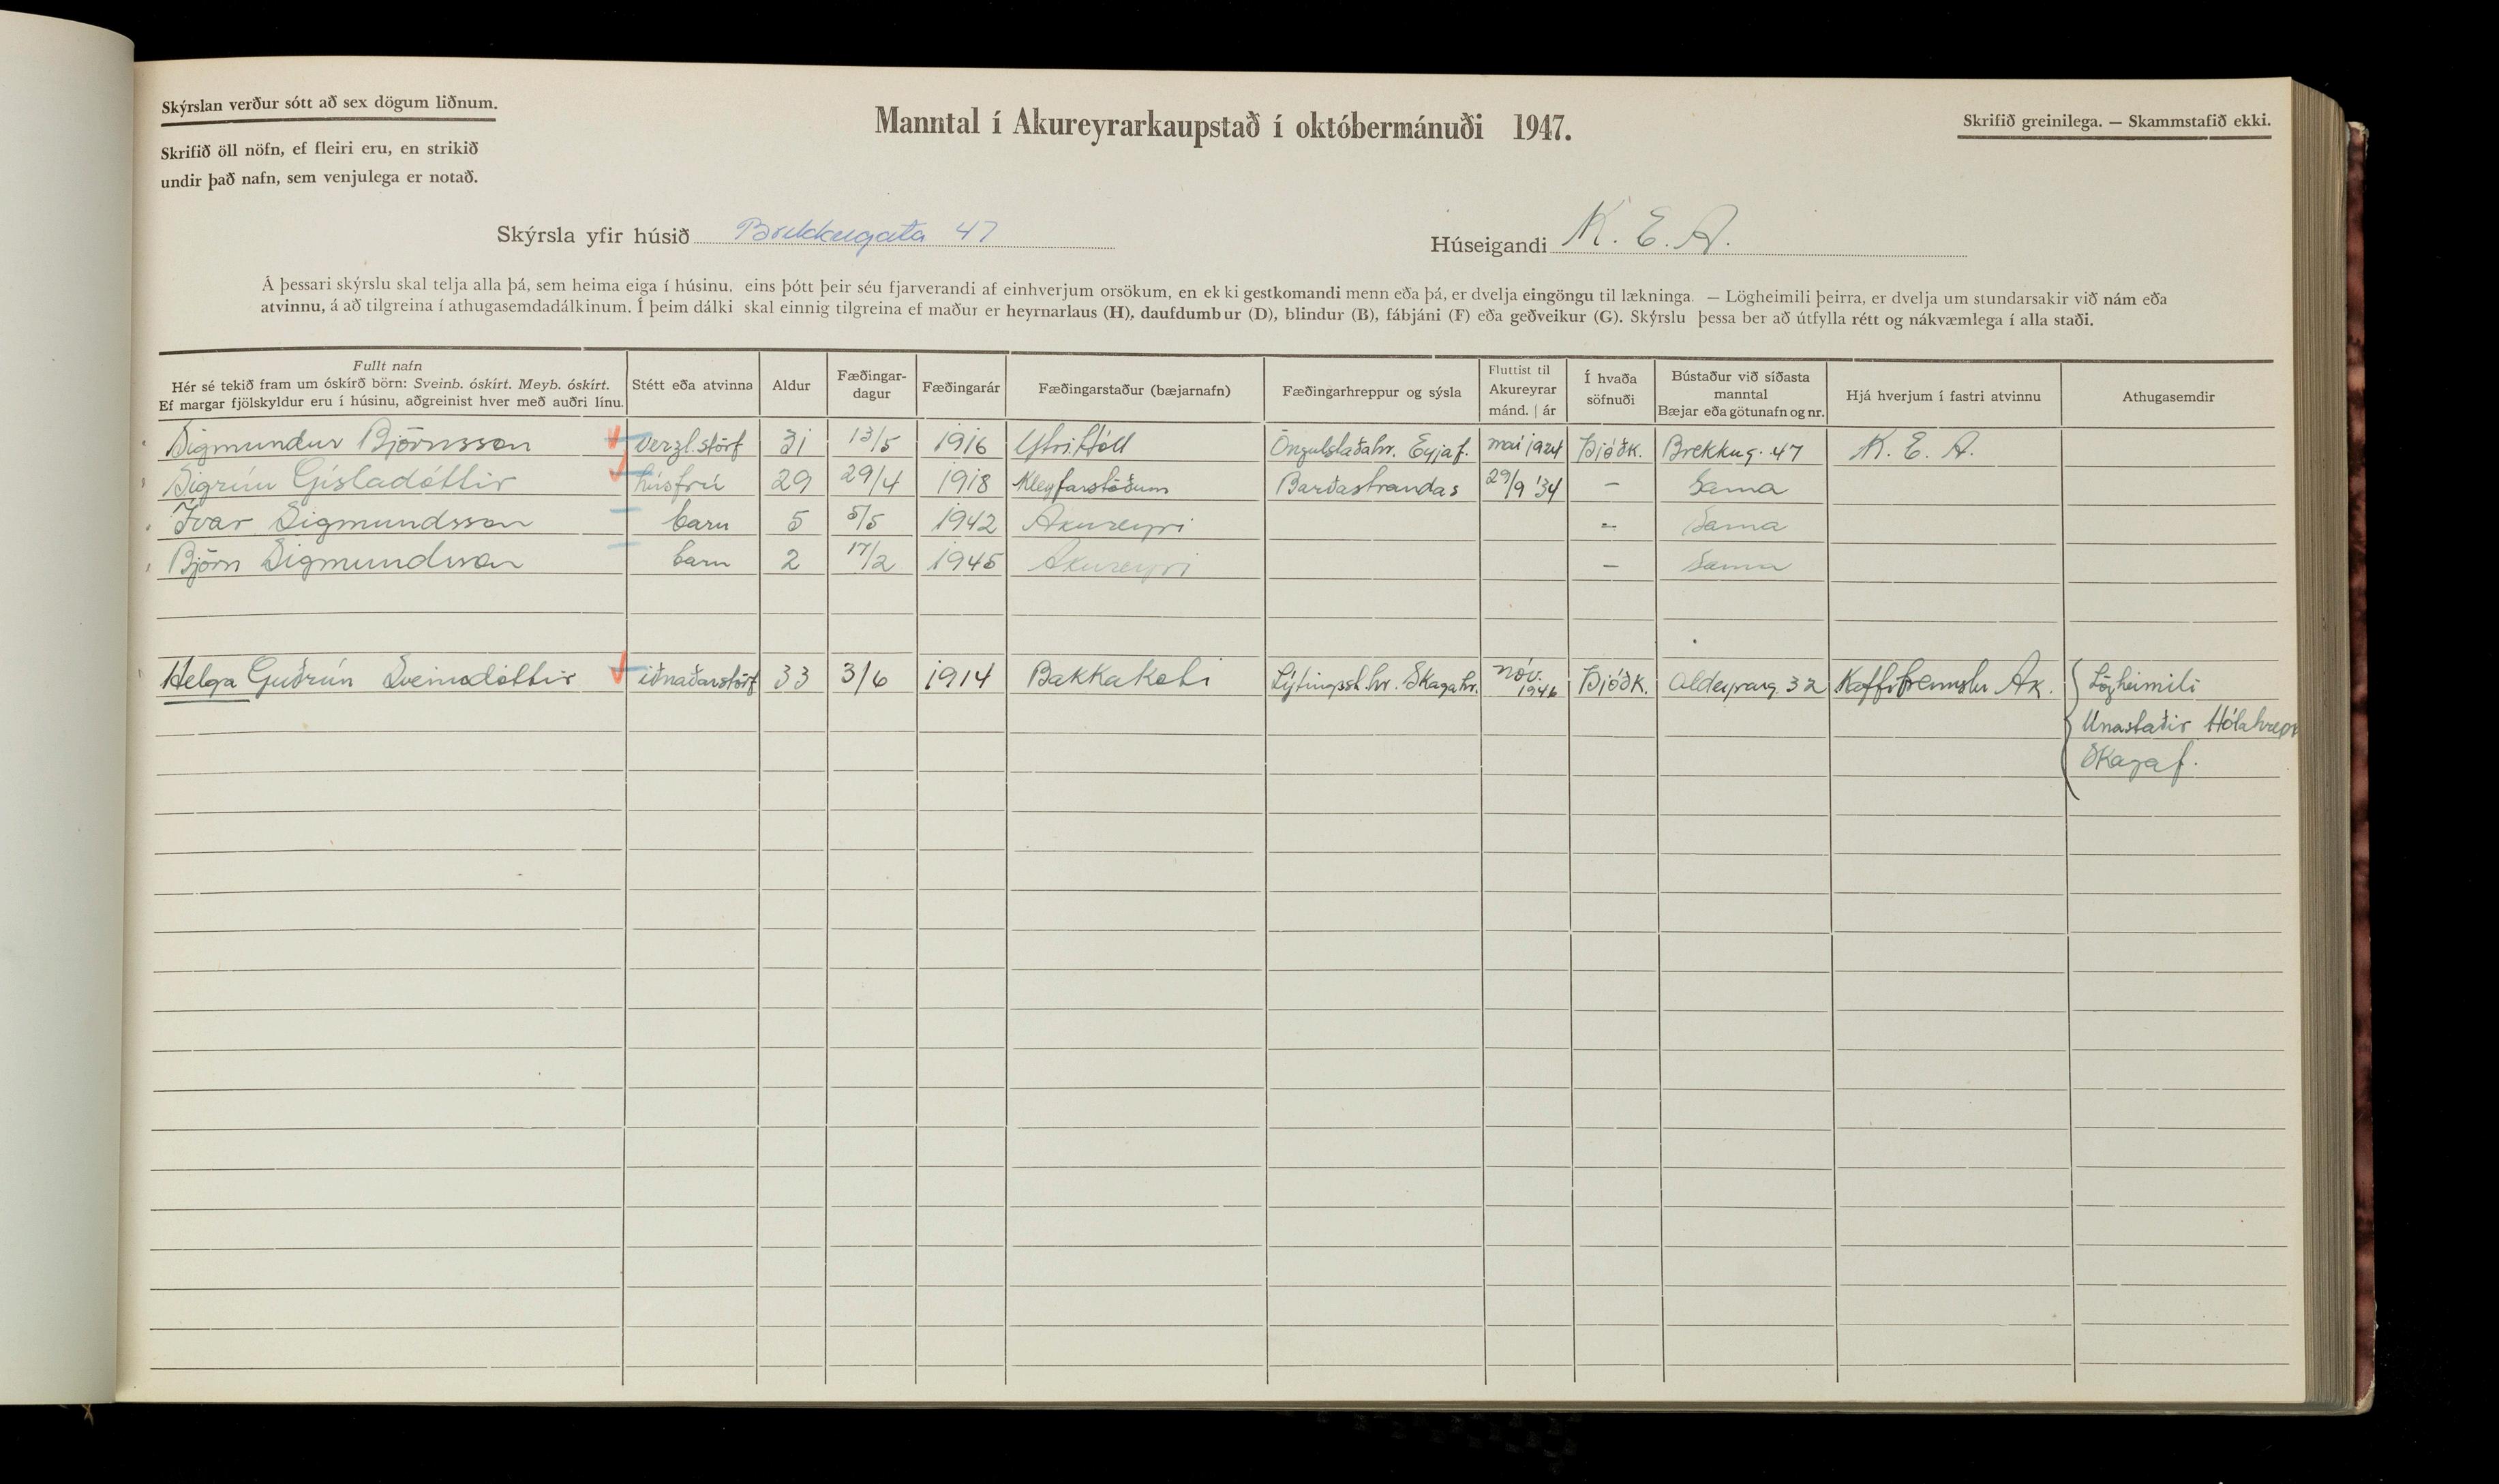 Skýrslan verður sótt að sex dögum liðnum.
Manntal í Akureyrarkaupstað í októbermánuði 1947.
Skrifið greinilega. — Skammstafið ekki.
Skrifið öll nöfn, ef fleiri eru, en strikið
undir það nafn, sem venjulega er notað.
Skýrsla yfir húsið Brekkugata 47
Húseigandi K. E. A.
Á þessari skýrslu skal telja alla þá, sem heima eiga í húsinu, eins þótt þeir séu fjarverandi af einhverjum orsökum, en ekki gestkomandi menn eða þá, er dvelja eingöngu til lækninga. — Lögheimili þeirra, er dvelja um stundarsakir við nám eða
atvinnu, á að tilgreina í athugasemdadálkinum. Í þeim dálki skal einnig tilgreina ef maður er heyrnarlaus (H), daufdumbur (D), blindur (B), fábjáni (F) eða geðveikur (G). Skýrslu þessa ber að útfylla rétt og nákvæmlega í alla staði.
Fullt nafn
Hér sé tekið fram um óskírð börn: Sveinb. óskírt. Meyb. óskírt.
Ef margar fjölskyldur eru í húsinu, aðgreinist hver með auðri línu.
Stétt eða atvinna
Aldur
Fæðingar-
dagur
Fæðingarár
Fæðingarstaður (bæjarnafn)
Fæðingarhreppur og sýsla
Fluttist til
Akureyrar
mánd. | ár
Í hvaða
söfnuði
Bústaður við síðasta
manntal
Bæjar eða götunafn og nr.
Hjá hverjum í fastri atvinnu
Athugasemdir
Sigmundur Björnsson verzl.störf 31 13/5 1916 Ytri Hóll Öngulstaðahr. Eyjaf. maí 1924 Þjóðk. Brekkug. 47 K. E. A.
Sigrún Gísladóttir húsfrú 29 29/4 1918 Kleyfarstöðum Barðastrandas 29/9 '34 – Sama
Ívar Sigmundsson barn 5 5/5 1942 Akureyri – Sama
Björn Sigmundsson barn 2 17/2 1945 Akureyri – Sama
Helga Guðrún Sveinsdóttir iðnaðarstörf 33 3/6 1914 Bakkakoti Lýtingsst.hr. Skagahr. nóv. 1946 Þjóðk. Aldeyrarg. 32 Kaffibrennslu Ak. Lögheimili
Unastaðir Hólahrepp
Skagaf.